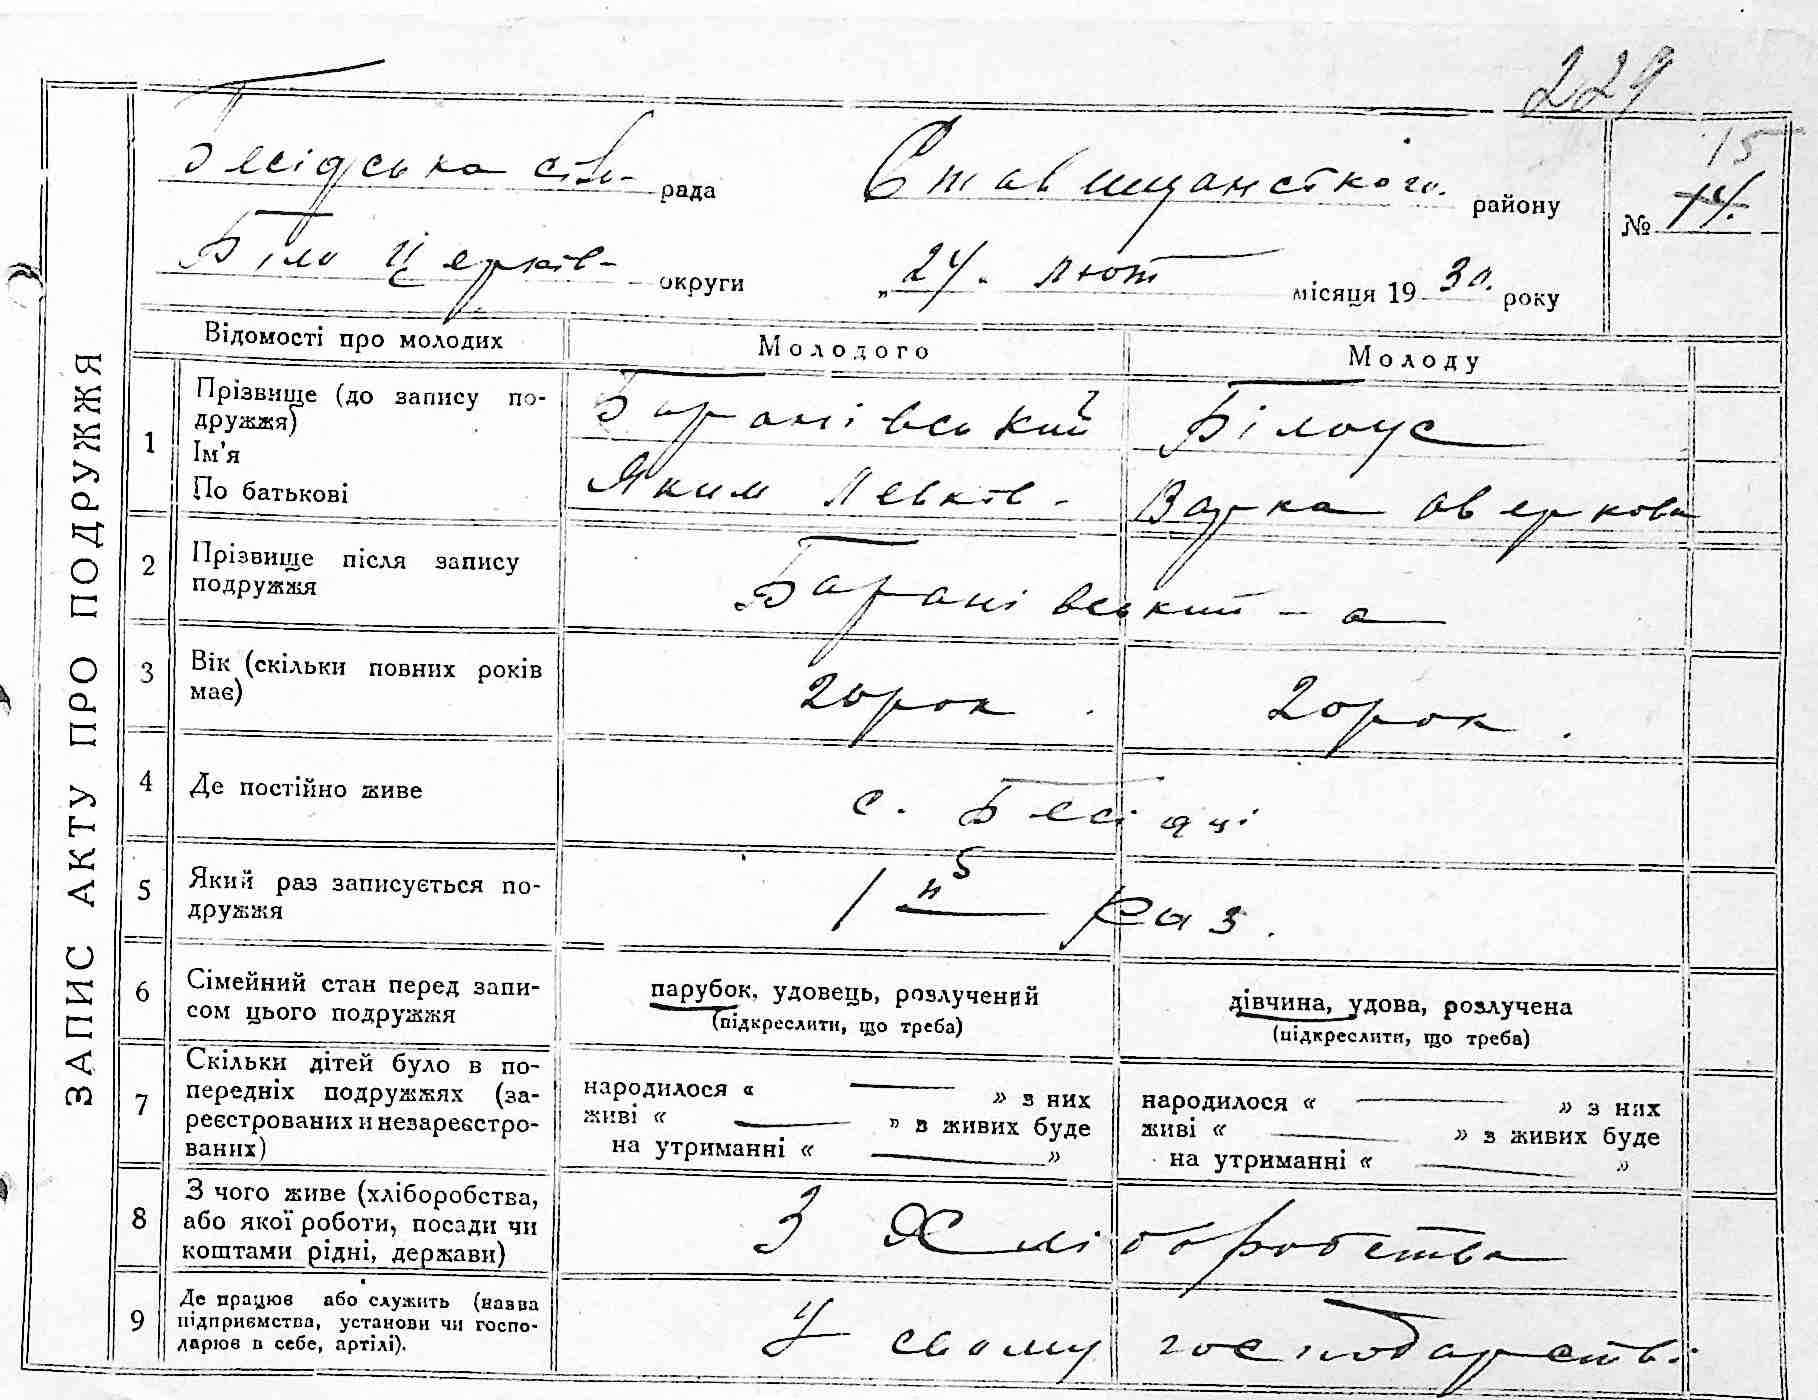 229
Бесідська сіль- рада Ставищанського району
15
№ 14.
Біло Церків- округи „24. лют місяця 1930. року
ЗАПИС АКТУ ПРО ПОДРУЖЖЯ
Відомості про молодих Молодого Молоду
1 Прізвище (до запису по-
дружжя) Баранівський Білоус
Ім'я
По батькові Яким Левків- Варка Оверкова
2 Прізвище після запису
подружжя Баранівський - а
3 Вік (скільки повних років
має) 20 рок. 20 рок.
4 Де постійно живе с. Бесідці
5 Який раз записується по-
дружжя 1й раз.
6 Сімейний стан перед запи-
сом цього подружжя
парубок, удовець, розлучений
(підкреслити, що треба)
дівчина, удова, розлучена
(підкреслити, що треба)
7 Скільки дітей було в по-
передніх подружжях (за-
реєстрованих и незареєстро-
ваних)
народилося « — » з них
живі « — » в живих буде
на утриманні « — »
народилося « — » з них
живі « — » з живих буде
на утриманні « — »
8 З чого живе (хліборобства,
або якої роботи, посади чи
коштами рідні, держави) З Хліборобства
9 Де працює або служить (назва
підприємства, установи чи госпо-
дарює в себе, артілі). У свому господарстві